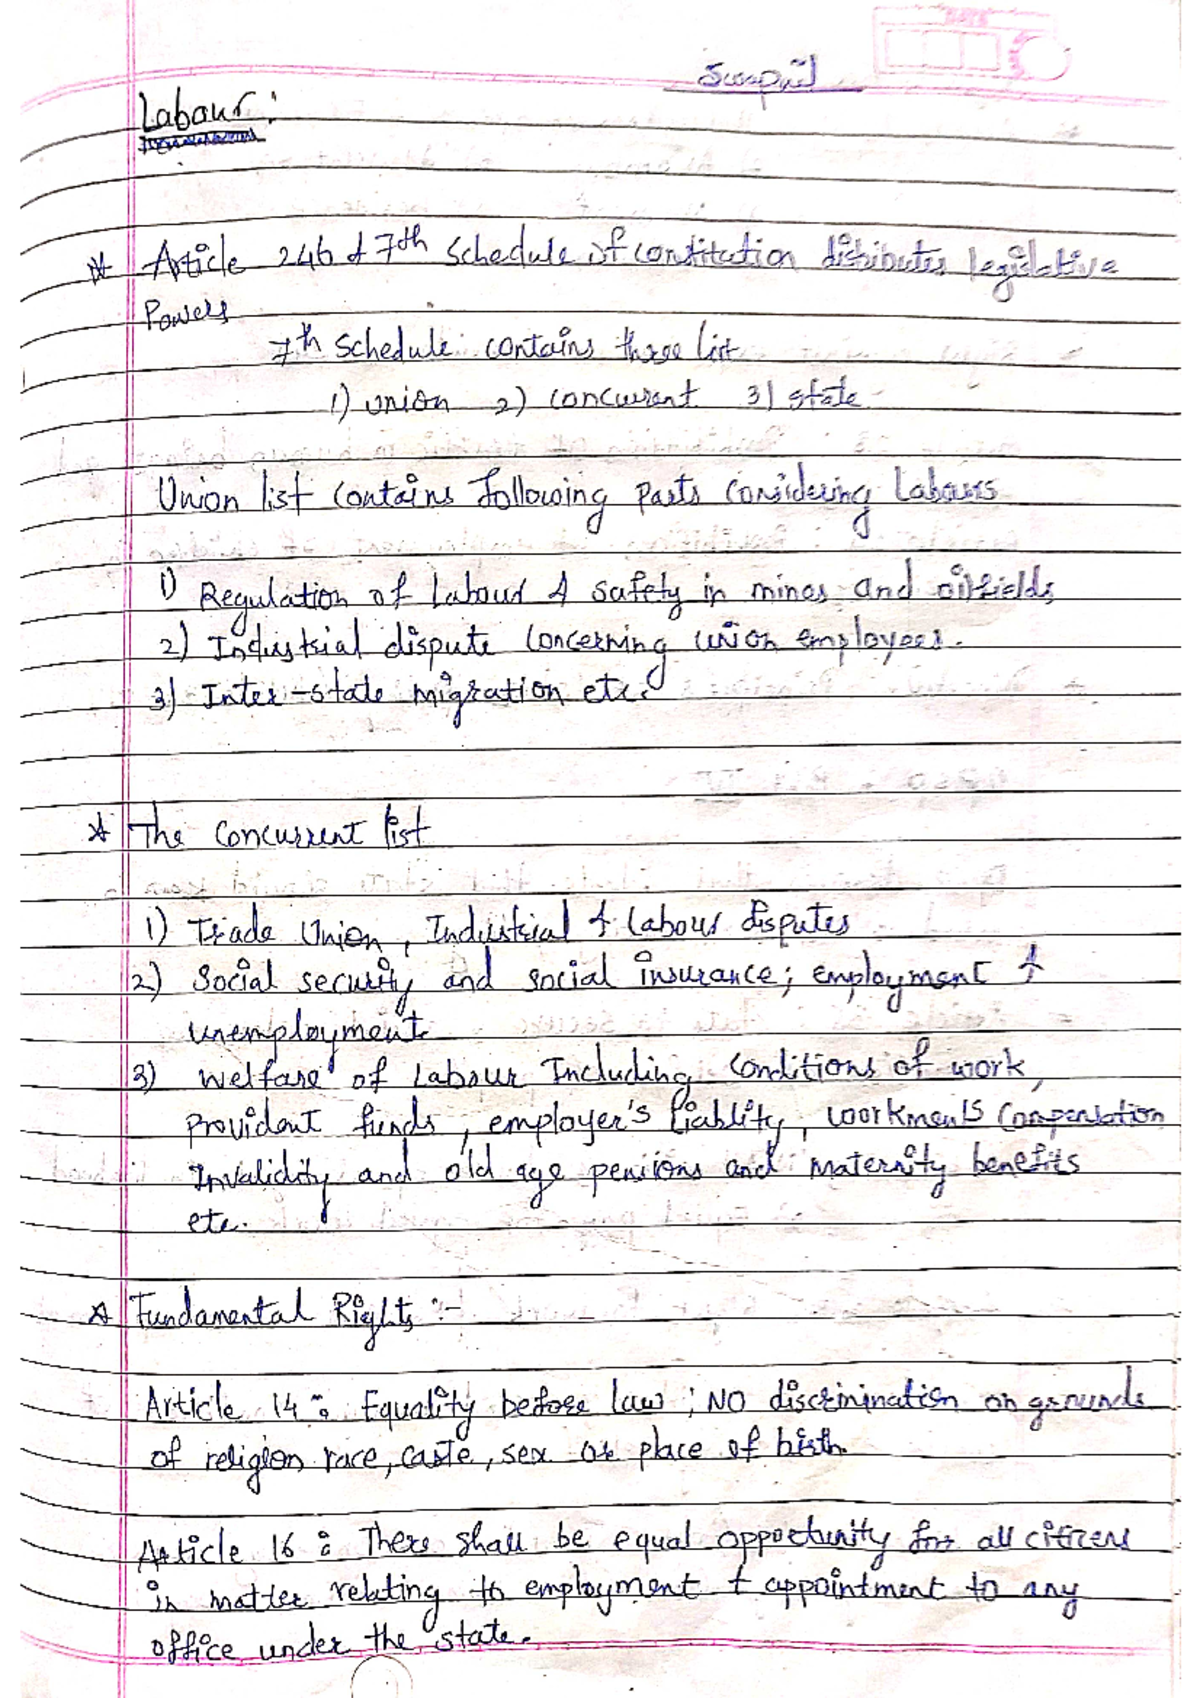 Labour :
* Article 246 & 7th Schedule of constitution distributes legislative
Powers
7th Schedule contains three list
1) union 2) concurrent 3) state
Union list contains following parts considering Labours
1) Regulation of Labour & safety in mines and oilfields
2) Industrial dispute concerning union employees.
3) Inter-state migration etc.
* The concurrent list
1) Trade Union, Industrial & labour disputes
2) Social security and social insurance; employment &
unemployment
3) Welfare of Labour Including conditions of work,
provident funds, employer's liablity, workmen's compensation
Invalidity and old age pensions and maternity benefits
etc.
* Fundamental Rights :-
Article 14 : Equality before law ; NO discrimination on grounds
of religion race, caste, sex or place of birth
Article 16 : There shall be equal opportunity for all citizens
in matter relating to employment & appointment to any
office under the state.